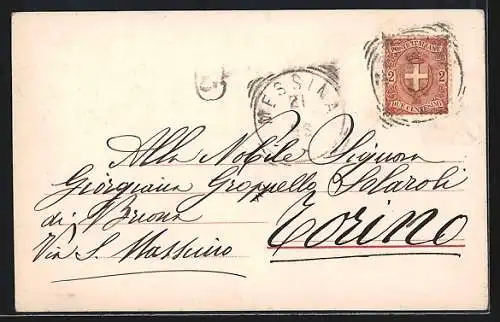 POSTE ITALIANE
2 2
DUE CENTESIMI
MESSINA
21
Alla Nobile Signora
Giorgiana Groppello Solaroli
di Briona
Via S. Massimo Torino